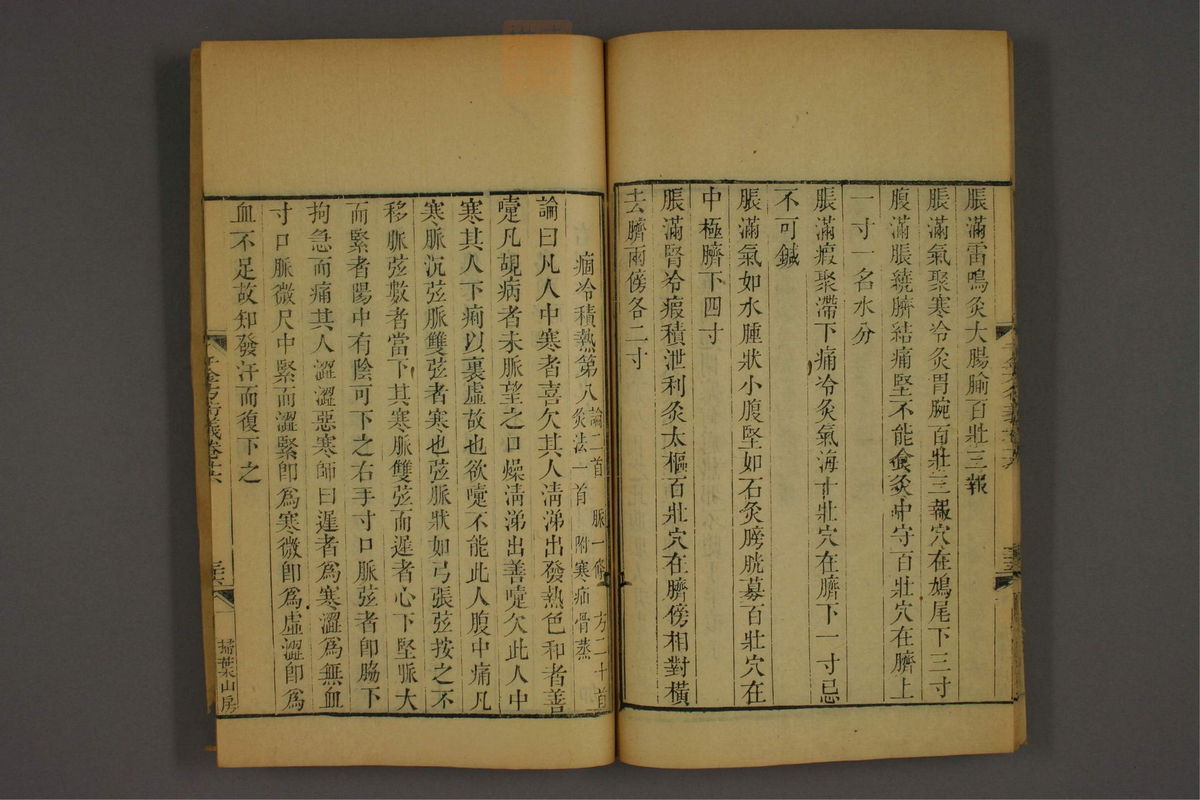 脹滿雷鳴灸大腸腧百壯三報
脹滿氣聚寒冷灸胃脘百壯三報穴在鳩尾下三寸
腹滿脹繞臍結痛堅不能食灸中守百壯穴在臍上
一寸一名水分
脹滿瘕聚滯下痛冷灸氣海十壯穴在臍下一寸忌
不可鍼
脹滿氣如水腫狀小腹堅如石灸膀胱募百壯穴在
中極臍下四寸
脹滿腎冷瘕積泄利灸太樞百壯穴在臍傍相對橫
去臍兩傍各二寸
痼冷積熱第八
論二首 脈一條 方二十首
灸法一首 附寒疝骨蒸
論曰凡人中寒者喜欠其人淸涕出發熱色和者善
嚏凡覘病者未脈望之口燥淸涕出善嚏欠此人中
寒其人下痢以裏虛故也欲嚏不能此人腹中痛凡
寒脈沉弦脈雙弦者寒也弦脈狀如弓張弦按之不
移脈弦數者當下其寒脈雙弦而遲者心下堅脈大
而緊者陽中有陰可下之右手寸口脈弦者卽脇下
拘急而痛其人澀澀惡寒師曰遲者爲寒澀爲無血
寸口脈微尺中緊而澀緊卽爲寒微卽爲虛澀卽爲
血不足故知發汗而復下之
千金方衍義卷十六
三六
掃葉山房